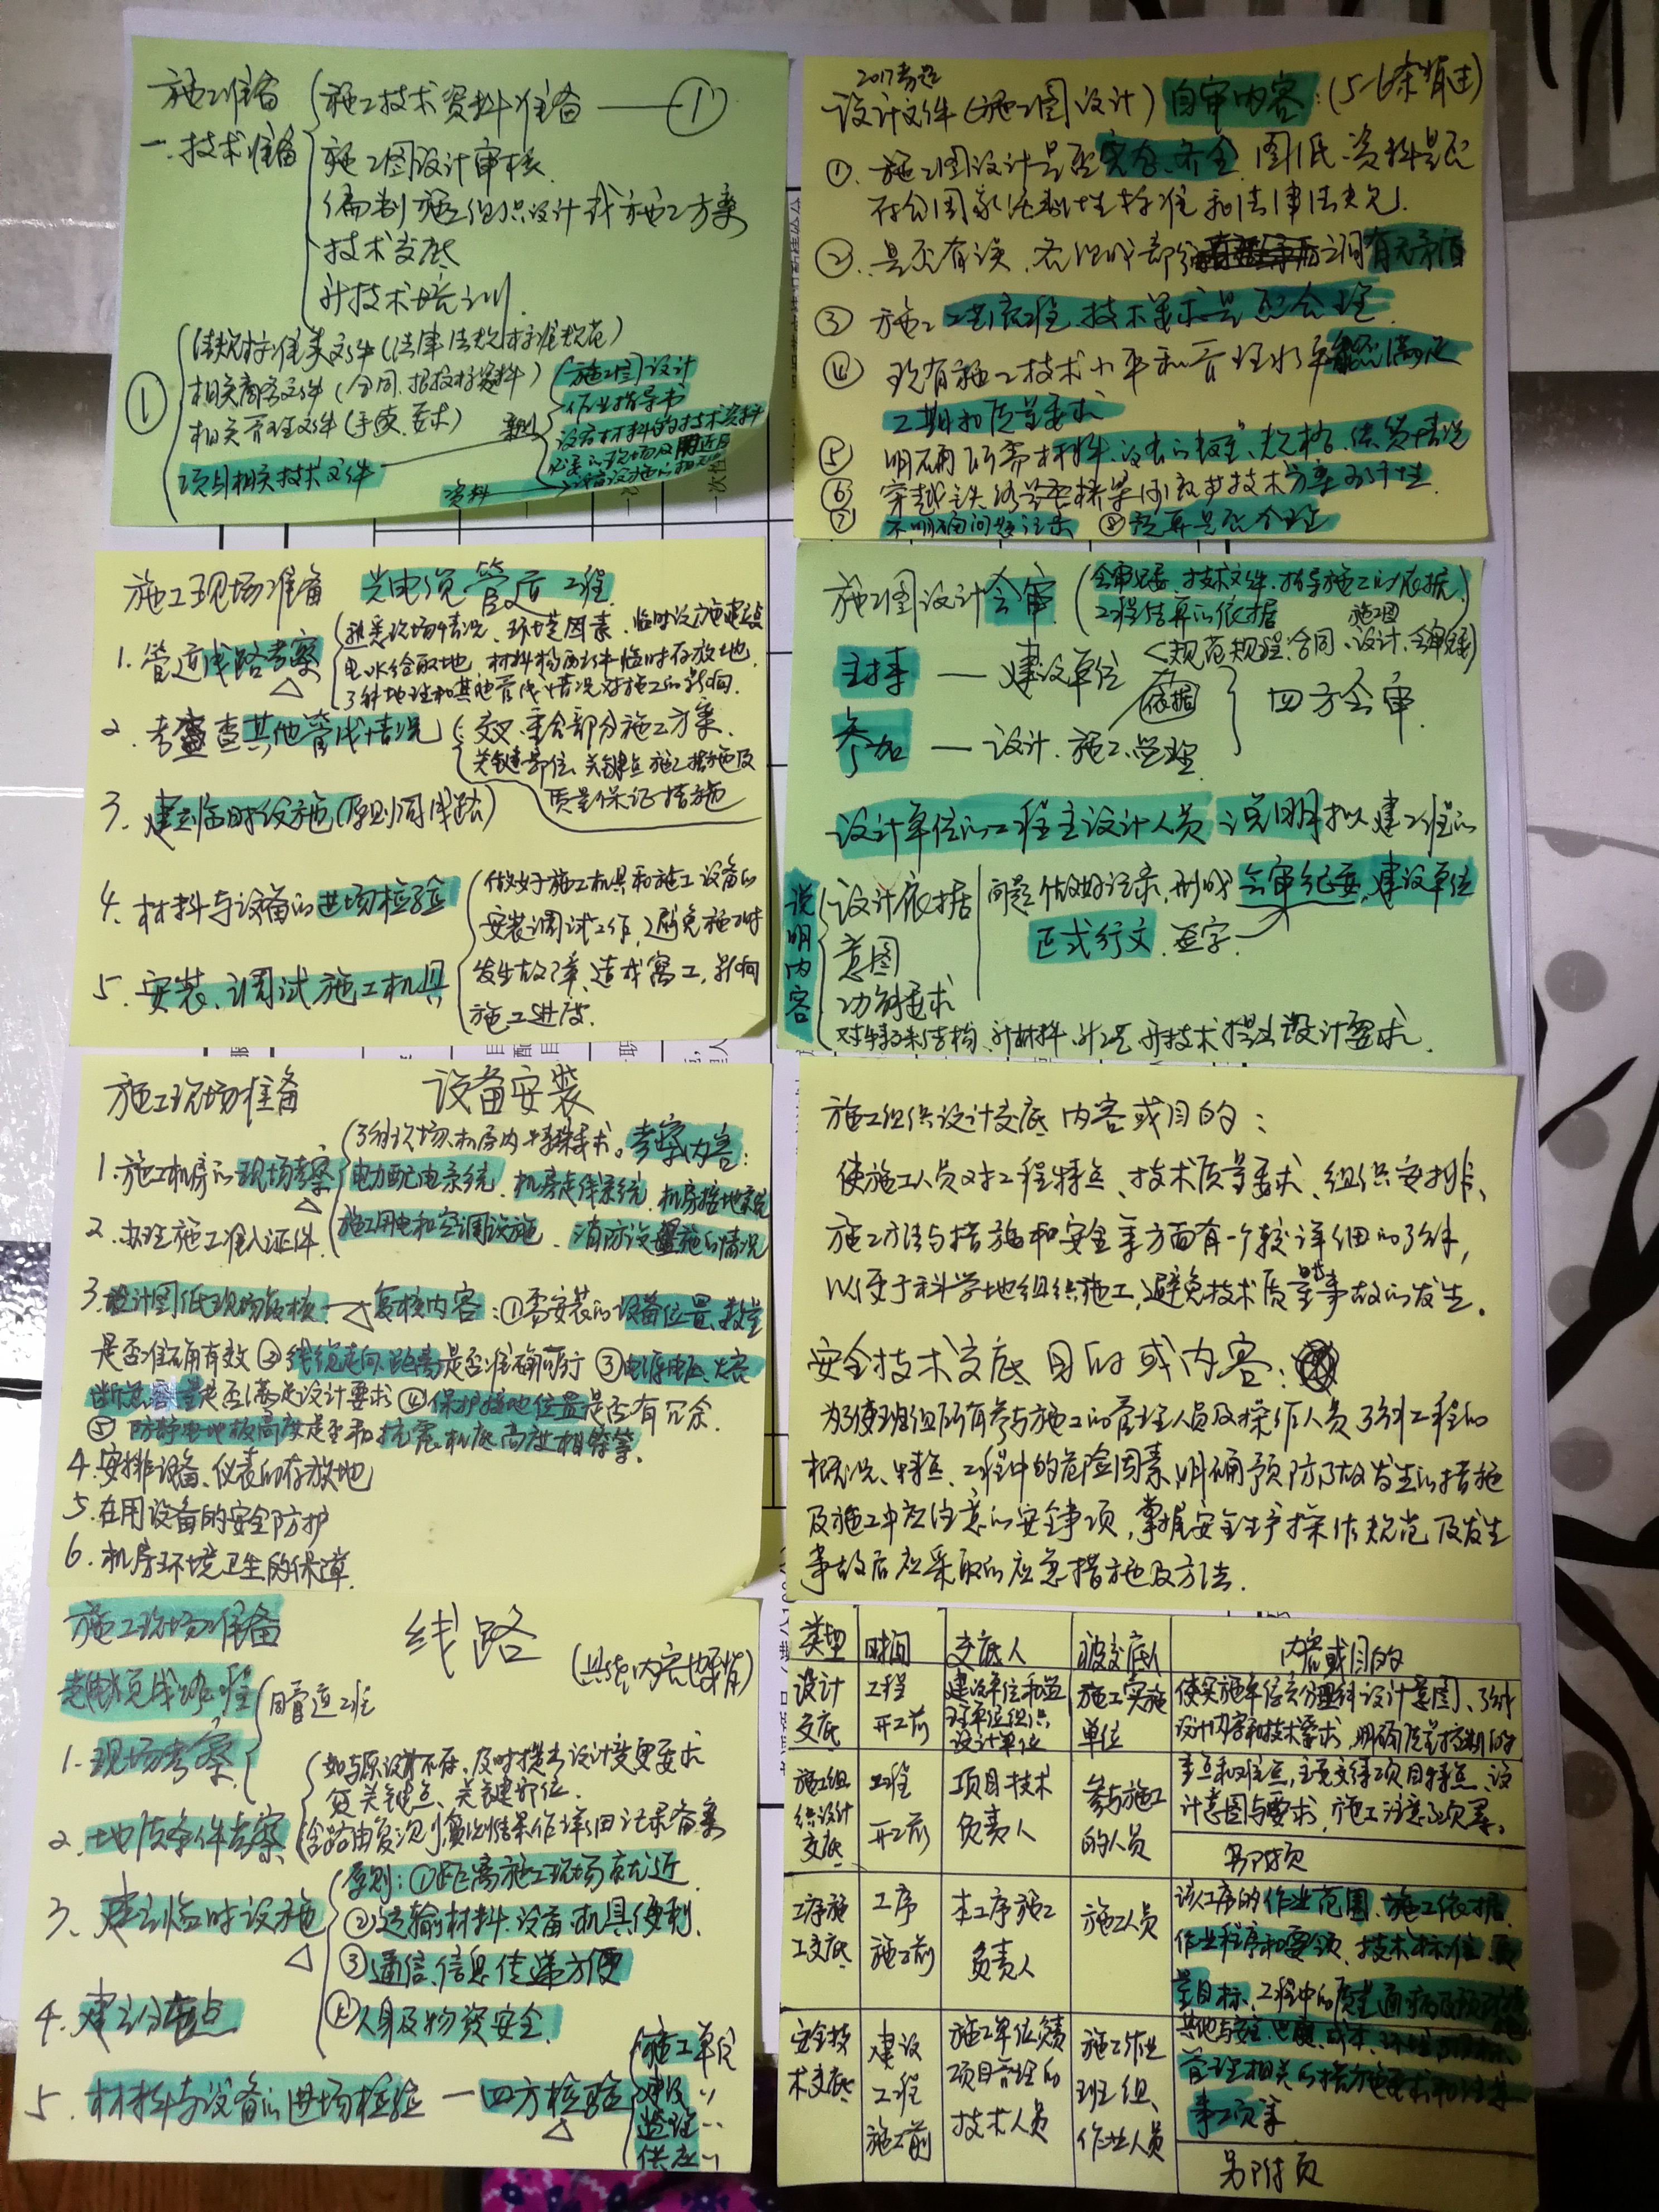 施工准备
一.技术准备
施工技术资料准备 —— ①
施工图设计审核
编制施工组织设计或施工方案
技术交底
新技术培训
①
法规标准类文件(法律.法规.标准规范)
相关商务文件(合同.招投标资料)
相关管理文件(手续.要求)
项目相关技术文件
施工图设计
作业指导书
设备材料的技术资料
资料
2017考过
设计文件(施工图设计)自审内容:(5-6条背过)
①.施工图设计是否完整、齐全 图纸、资料是否
符合国家强制性标准和法律法规.
②.是否有误、各组成部分之间有无矛盾
③ 施工工艺流程、技术要求是否合理
④ 现有施工技术水平和管理水平能否满足
工期和质量要求
⑤ 明确所需材料、设备的数量、规格、供货情况
⑥ 穿越铁路、公路、桥梁、河流等技术方案可行性
⑦ 不明确问题记录 ⑧预算是否合理
施工现场准备 光电缆管道工程
1.管道线路考察
熟悉现场情况、环境因素、临时设施建设点
电、水给取地 材料构配件临时存放地.
了解地理和其他管线情况对施工的影响.
2.考查其他管线情况
交叉.重合部分施工方案.
关键部位、关键点施工措施及
质量保证措施
3.建立临时设施(原则同线路)
4.材料与设备的进场检验
5.安装、调试施工机具
做好施工机具和施工设备的
安装调试工作,避免施工时
发生故障、造成窝工,影响
施工进度.
施工图设计会审
(会审纪要.技术文件.指导施工的依据.
工程结算的依据
施工图
<规范规程.合同、设计、会审纪要>
主持 — 建设单位
依据
参加 — 设计.施工.监理
四方会审
设计单位的工程主设计人员 说明拟建工程的
说明内容
设计依据
意图
功能要求
对特殊结构、新材料、新工艺、新技术提出设计要求.
问题做好记录,形成会审纪要,建设单位
正式行文.签字
施工现场准备 设备安装
1.施工机房的现场考察
了解现场、机房内特殊要求。考察内容:
电力配电系统、机房走线系统、机房接地系统
施工用电和空调设施、消防设施的情况
2.办理施工准入证件.
3.设计图纸现场复核 → 复核内容:①需安装的设备位置、数量
是否准确有效 ②线缆走向、距离是否准确可行 ③电源电压、熔
断器容量是否满足设计要求 ④保护接地位置是否有冗余.
⑤防静电地板高度是否和抗震机底高度相等等。
4.安排设备、仪表的存放地
5.在用设备的安全防护
6.机房环境卫生的保障.
施工组织设计交底 内容或目的:
使施工人员对工程特点、技术质量要求、组织安排、
施工方法与措施和安全等方面有一个较详细的了解,
以便于科学地组织施工,避免技术质量等事故的发生。
安全技术交底 目的或内容:
为了使班组所有参与施工的管理人员及操作人员了解工程的
概况、特点、工程中的危险因素,明确预防事故发生的措施
及施工中应注意的安全事项,掌握安全生产操作规范及发生
事故后应采取的应急措施及方法.
施工现场准备 线路
(具体内容也要背)
光电缆线路工程
1.现场考察
同管道工程
2.地质条件考察
如与原设计不符,及时提出设计变更要求
关键点、关键部位.
含路由复测,测量结果作详细记录备案
3、建立临时设施
原则:①距离施工现场就近
②运输材料.设备.机具便利.
③通信、信息传递方便
④人身及物资安全.
4.建立分屯点
5.材料与设备的进场检验 — 四方检验
施工单位
建设〃
监理〃
供应〃
类型 时间 交底人 被交底人 内容或目的
设计交底 工程开工前 建设单位和监理单位组织设计单位 施工实施单位 使实施单位充分理解设计意图、了解设计内容和技术要求,明确质量控制的重点和难点,
施工组织设计交底 工程开工前 项目技术负责人 参与施工的人员 另附页
工序施工交底 工序施工前 本工序施工负责人 施工人员 该工序的作业范围、施工依据、作业程序和要领、技术标准、质量目标、工程中的质量通病及预防措施
其他与安全、进度、成本、环境
管理相关的措施要求和注意事项等
安全技术交底 建设工程施工前 施工单位负责项目管理的技术人员 施工作业班组、作业人员 另附页